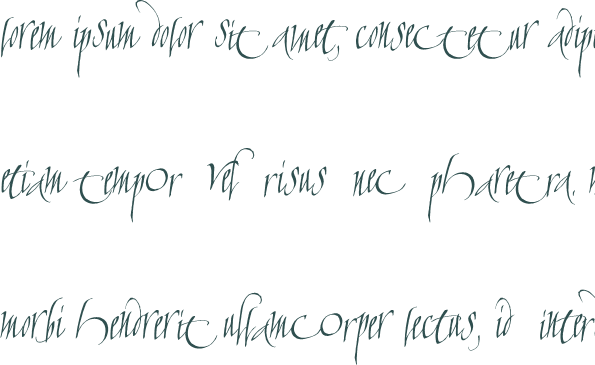 lorem ipsum dolor sit amet, consectetur adipi
etiam tempor vel risus nec pharetra.
morbi hendrerit ullamcorper lectus, id inter